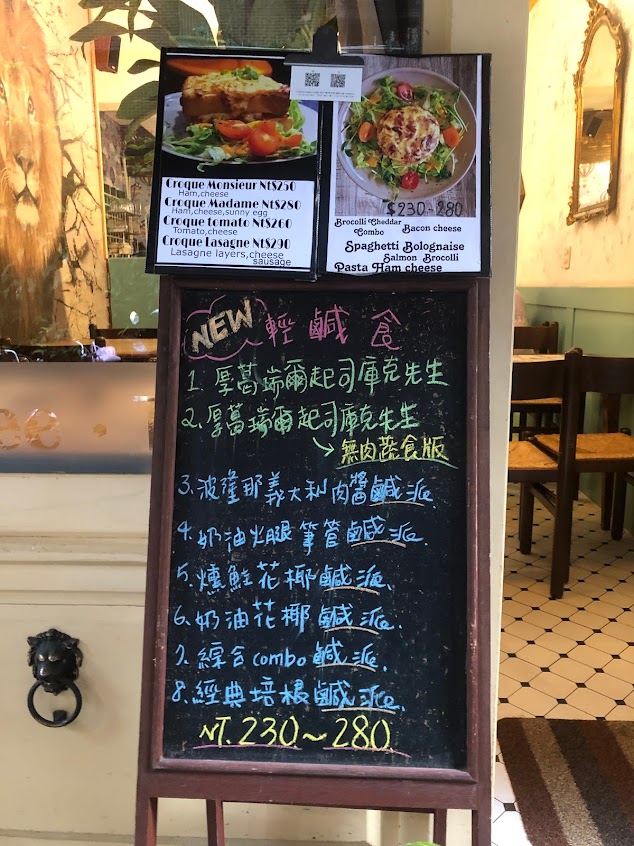 Croque Monsieur NT$250
Ham,cheese
Croque Madame NT$280
Ham,cheese,sunny egg
Croque tomato NT$260
Tomato,cheese
Croque Lasagne NT$290
Lasagne layers,cheese
sausage
$230-280
Brocolli Cheddar
Combo
Bacon cheese
Spaghetti Bolognaise
Salmon Brocolli
Pasta Ham cheese
NEW 輕鹹食
1. 厚葛瑞爾起司庫克先生
2. 厚葛瑞爾起司庫克先生
無肉蔬食版
3. 波隆那義大利肉醬鹹派
4. 奶油火腿筆管鹹派.
5. 燻鮭花椰鹹派.
6. 奶油花椰鹹派.
7. 綜合combo鹹派.
8. 經典培根鹹派.
NT. 230~280
ee